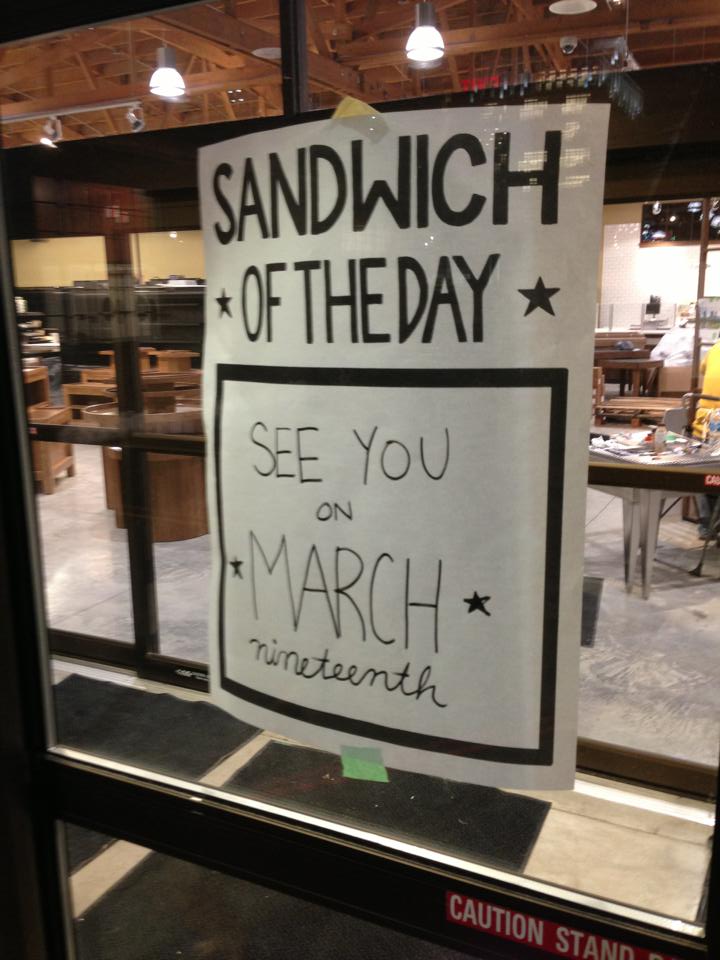 SANDWICH
OF THE DAY
SEE YOU
ON
MARCH
nineteenth
CAUTION STAND